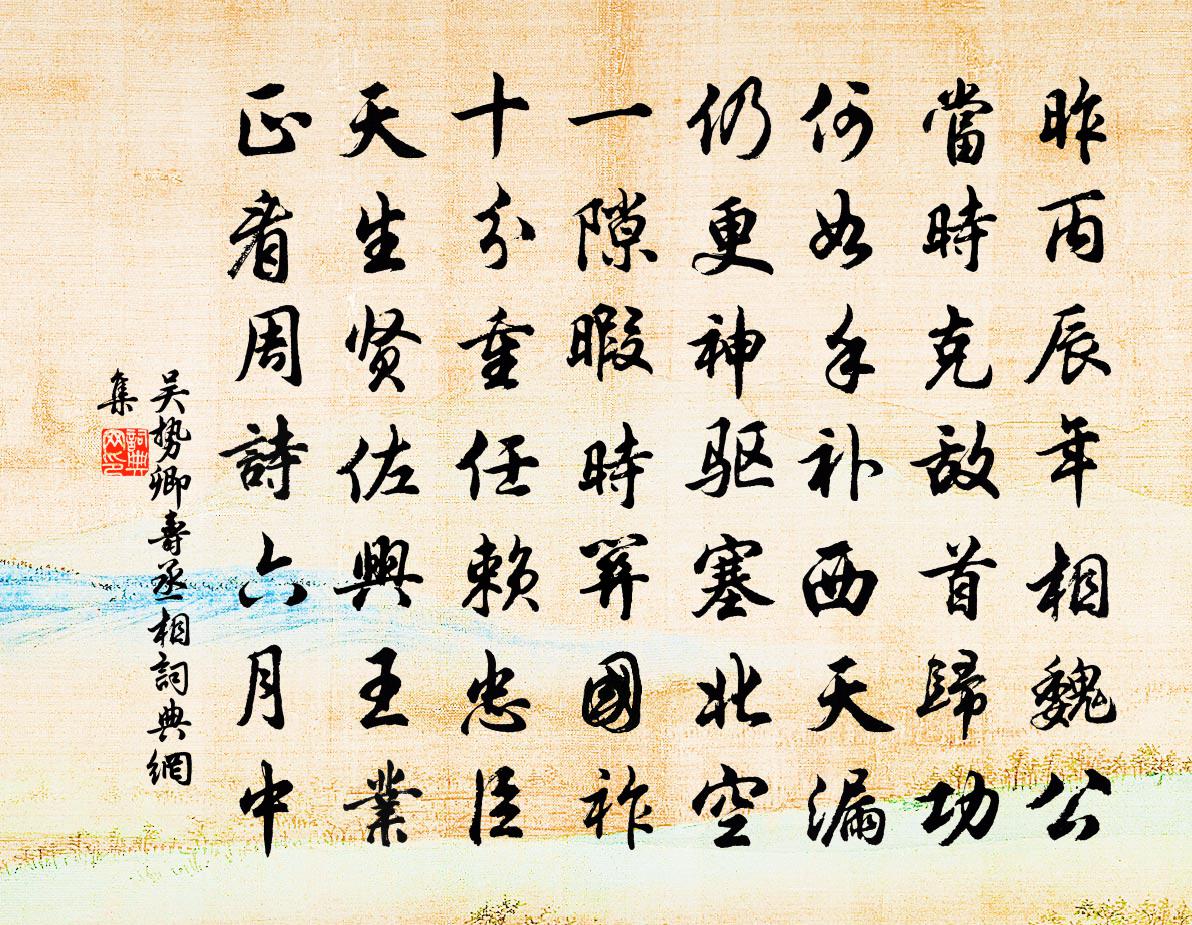 昨丙辰年相魏公
當時克敌首歸功
何如手补西天漏
仍更神驱塞北空
一隙暇時开國祚
十分重任赖忠臣
天生贤佐興王業
正看周詩六月中
吴势卿壽丞相詞典網
集
詞典
网印